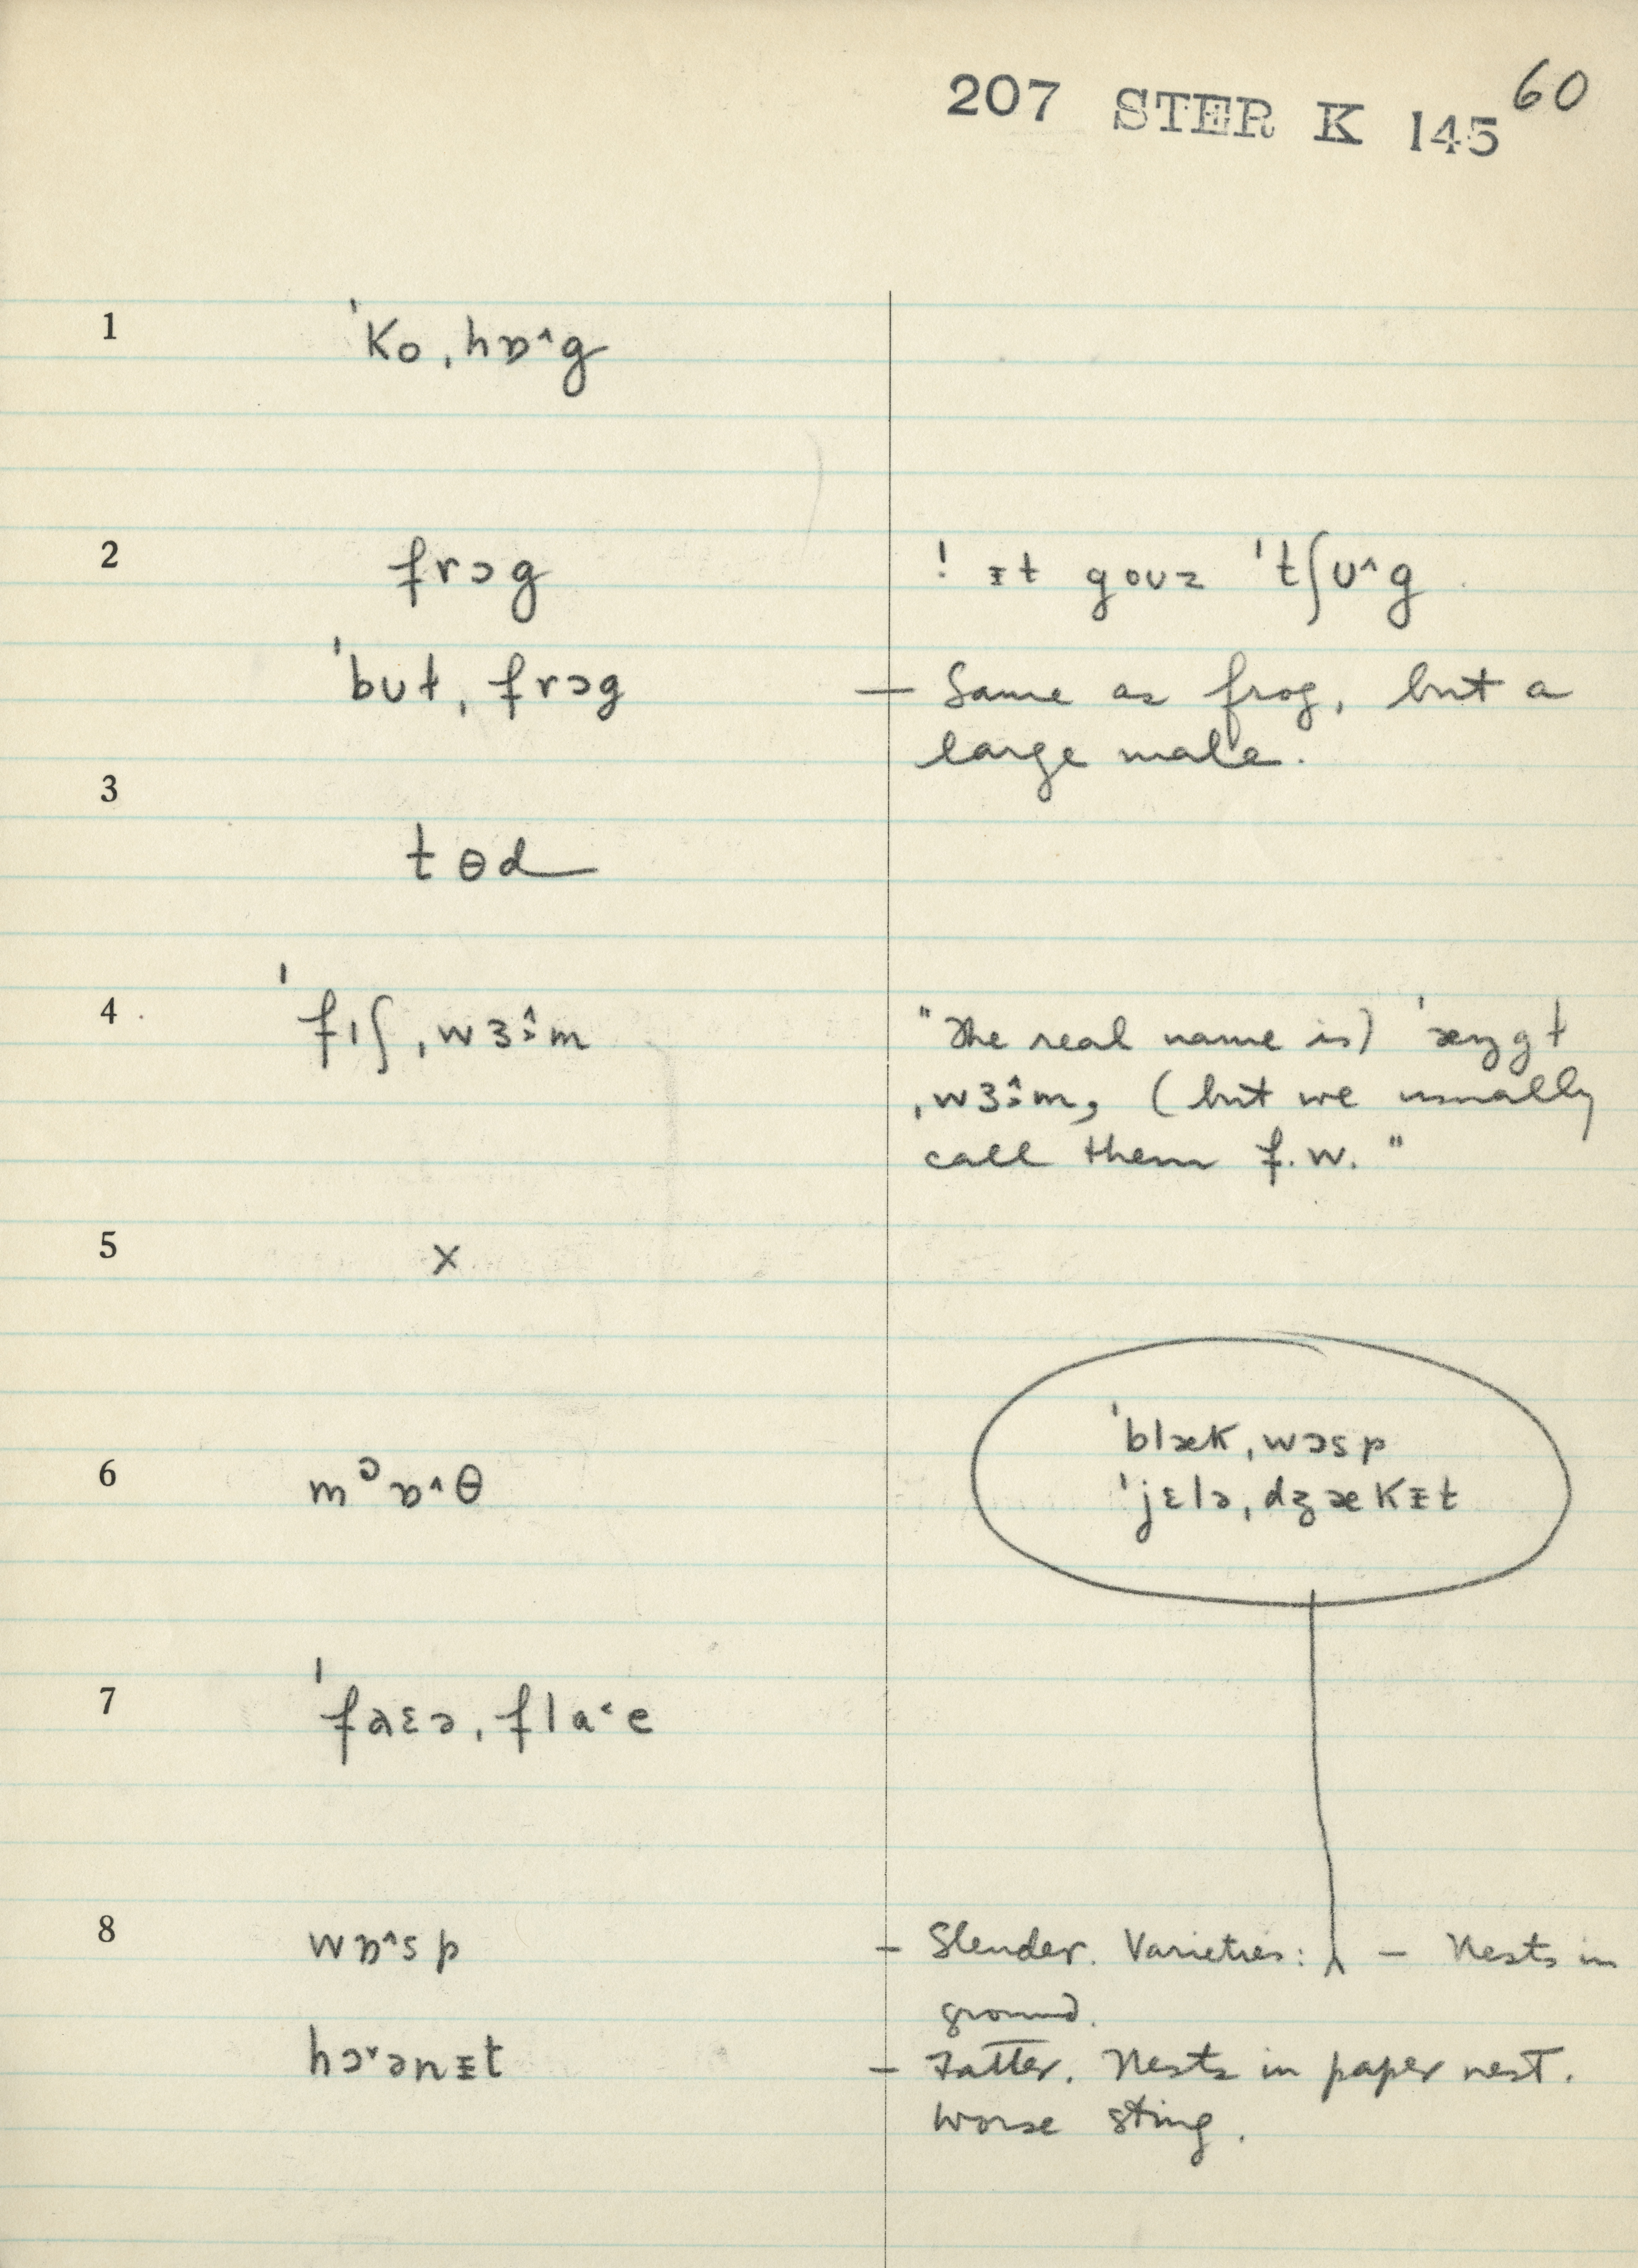 207 STER K 145 60
1 ˈko ˌhɒ˄g
2 frɔg ! ɪt goʊz ˈtʃʊ˄g
ˈbʊɫ ˌfrɔg — Same as frog, but a
large male.
3
tɵd
4 ˈfɪʃ ˌwɜ˄:m "The real name is)
ˌwɜ˄:m, (but we usually
call them f.w."
5 x
ˈblæk ˌwɔsp
6 mᵓɒ˄θ ˈjɛlə ˌdʒækɪt
7 ˈfaɛə ˌfla˂e
8 wɒ˄sp – Slender. Varieties: ⋏ – Nests in
ground.
hɔ˅ənɪt – Fatter. Nests in paper nest.
Worse sting.